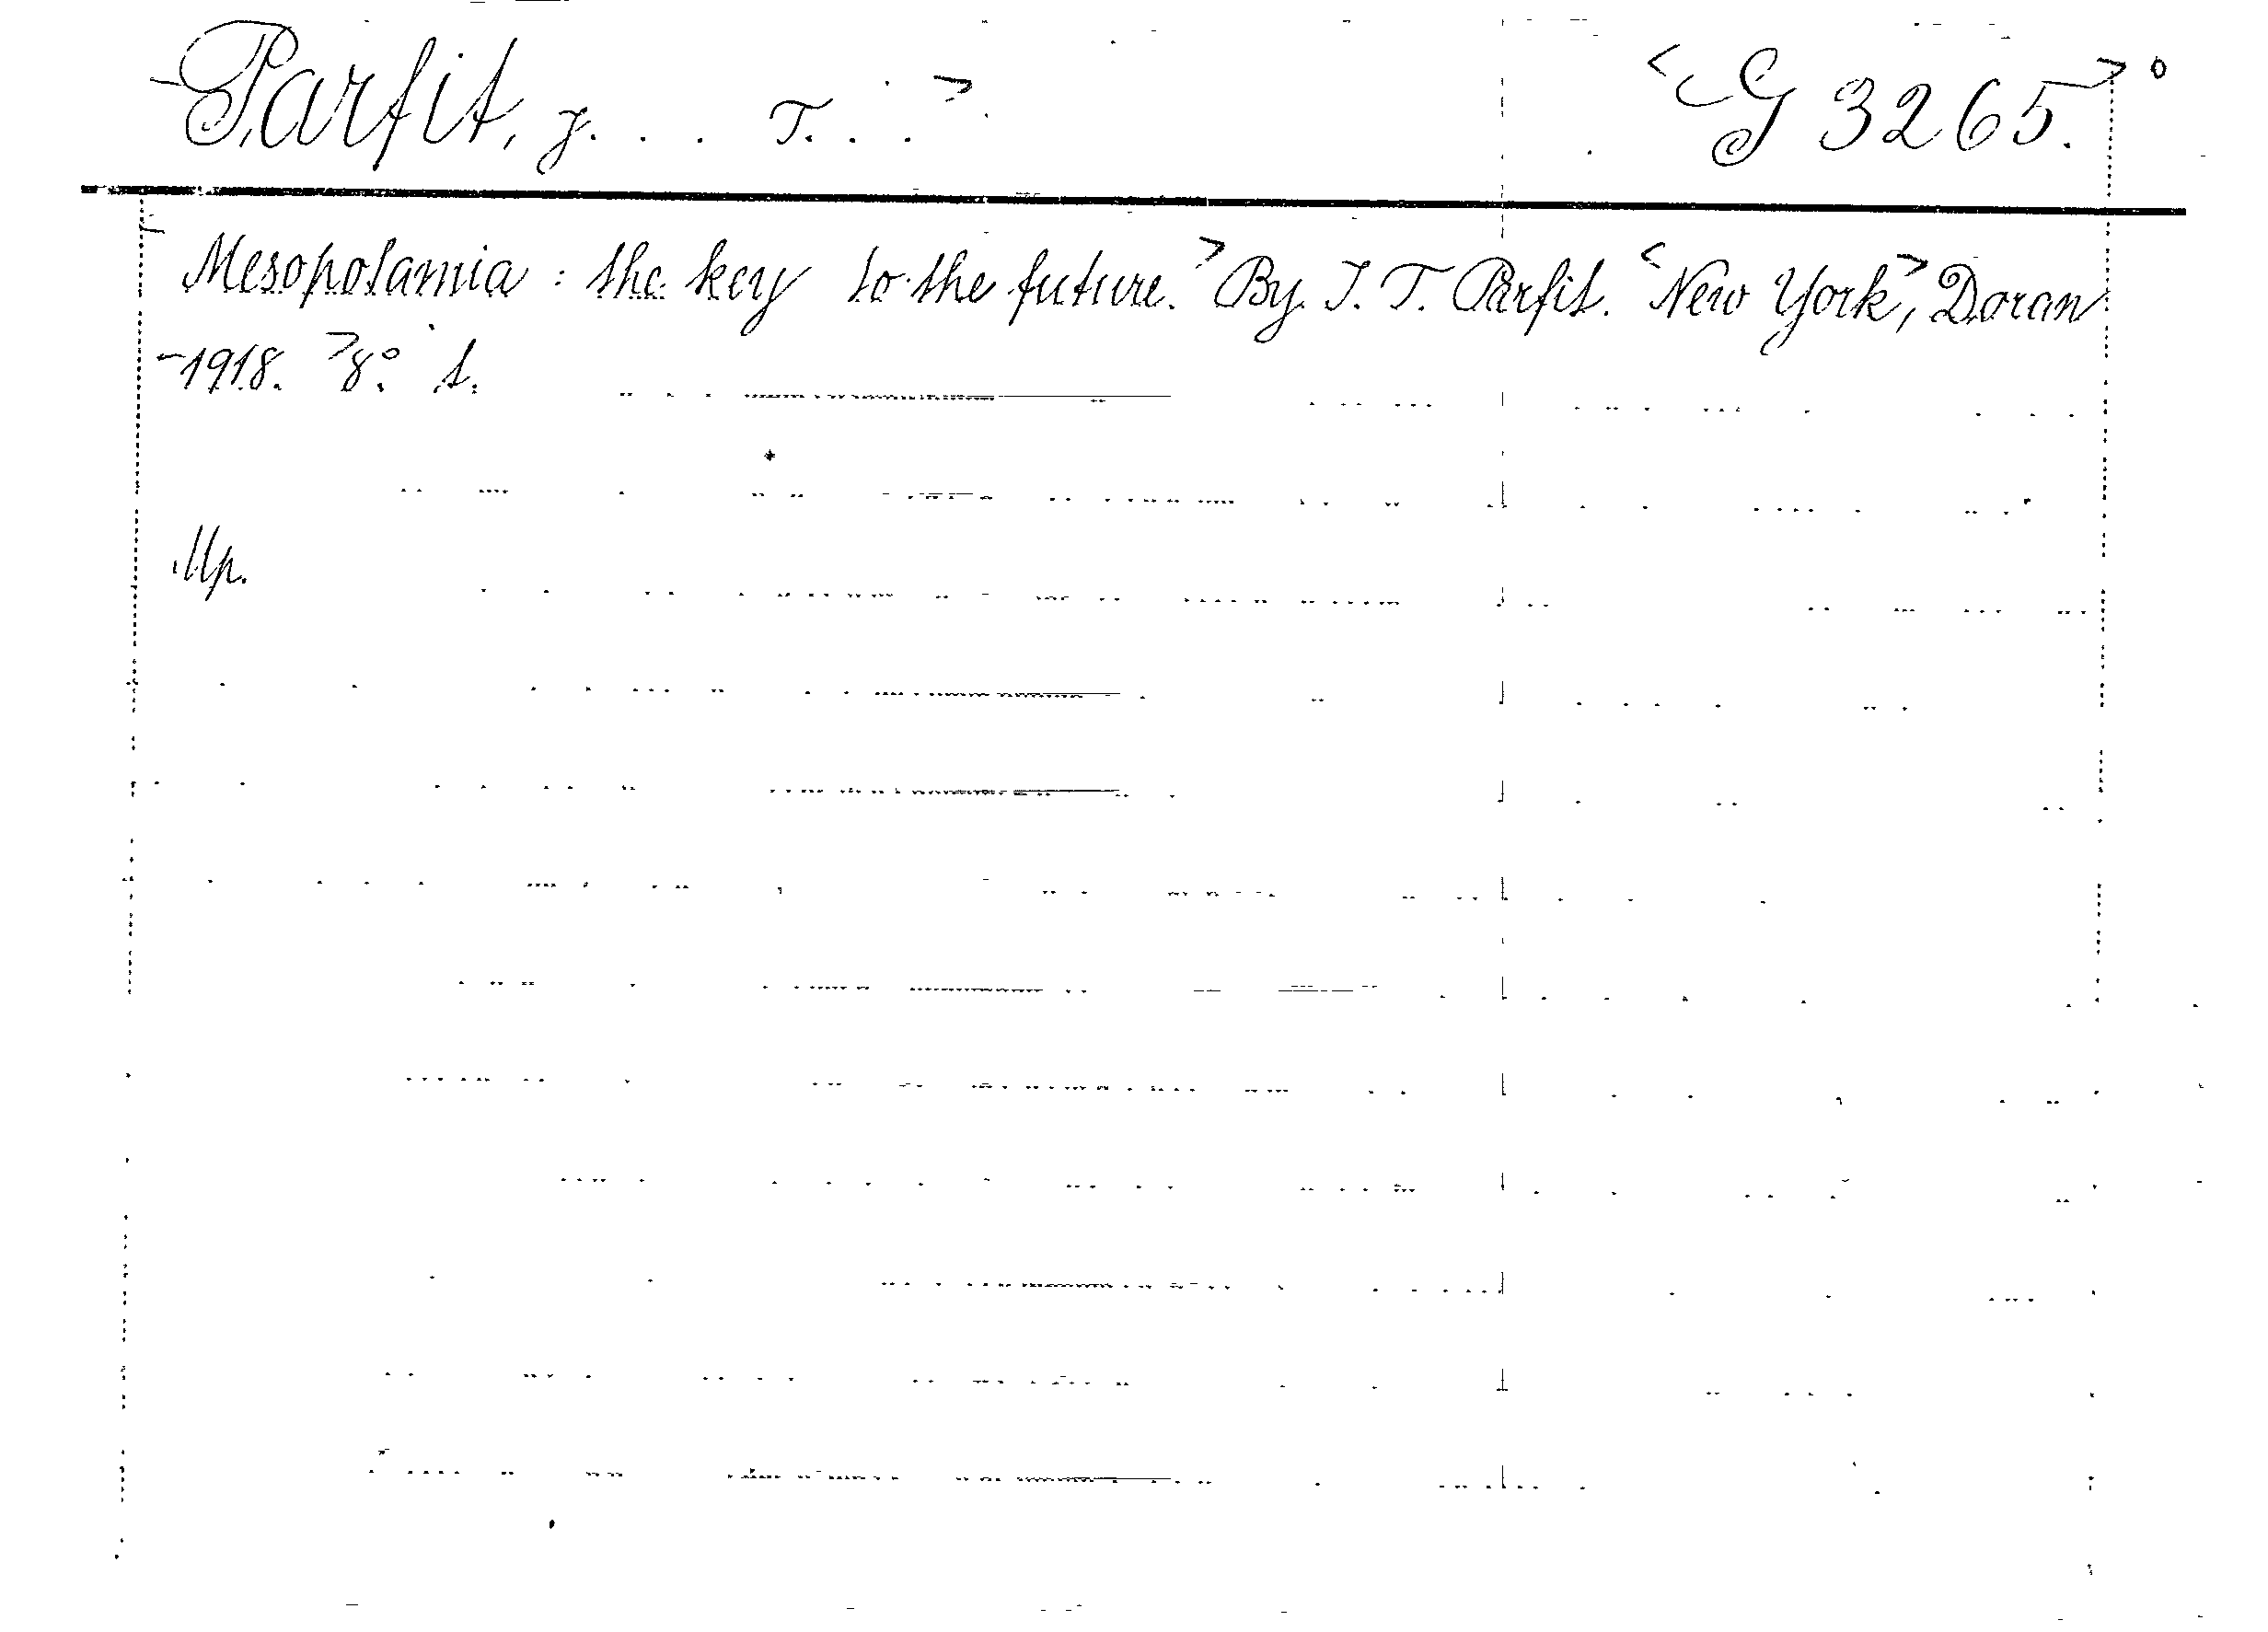 Parfit, J. . . T. . . G 3265.
Mesopotamia: the key to the future. By J. T. Parfit. New York, Doran
1918. 8°.